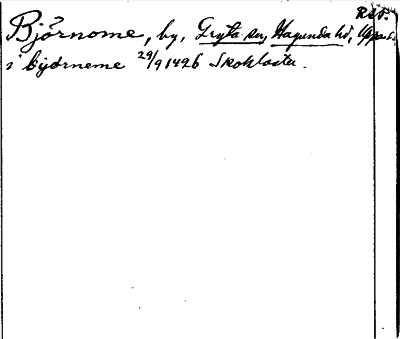 Rev.
Björnome, by, Gryta sn, Hagunda hd, Uppsala
i byörneme 29/9 1426 Skokloster.